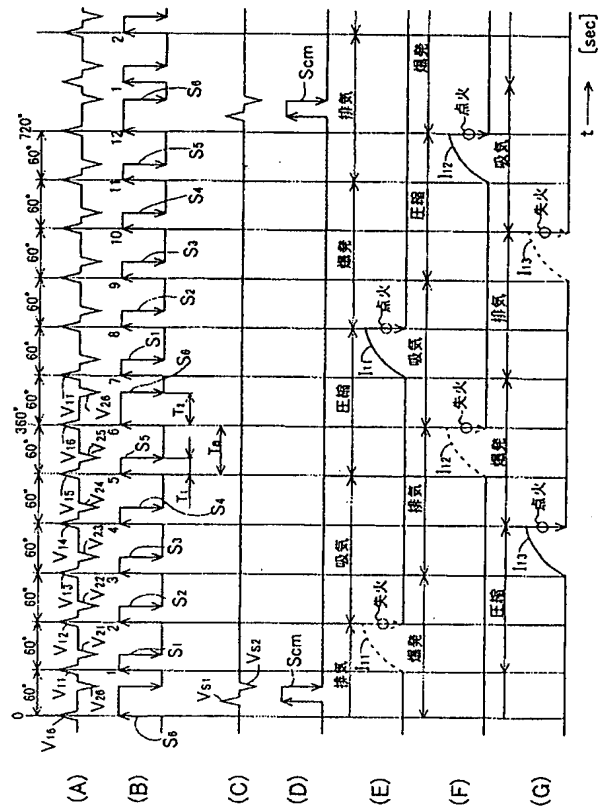 0 360° 720°
60° 60° 60° 60° 60° 60° 60° 60° 60° 60° 60° 60°
(A) V16 V11 V12 V13 V14 V15 V16 V11
V26 V21 V22 V23 V24 V25 V26
(B) 1 2 3 4 5 6 7 8 9 10 11 12 1 2
S6 S1 S2 S3 S4 S5 S6 S1 S2 S3 S4 S5 S6
T1 T2
Ta
(C) Vs1 Vs2
(D) Scm Scm
(E) 排気 吸気 圧縮 爆発 排気
I11 失火 I11 点火
(F) 爆発 排気 吸気 圧縮 爆発
I12 失火 I12 点火
(G) 圧縮 爆発 排気 吸気
I13 点火 I13 失火
t [sec]